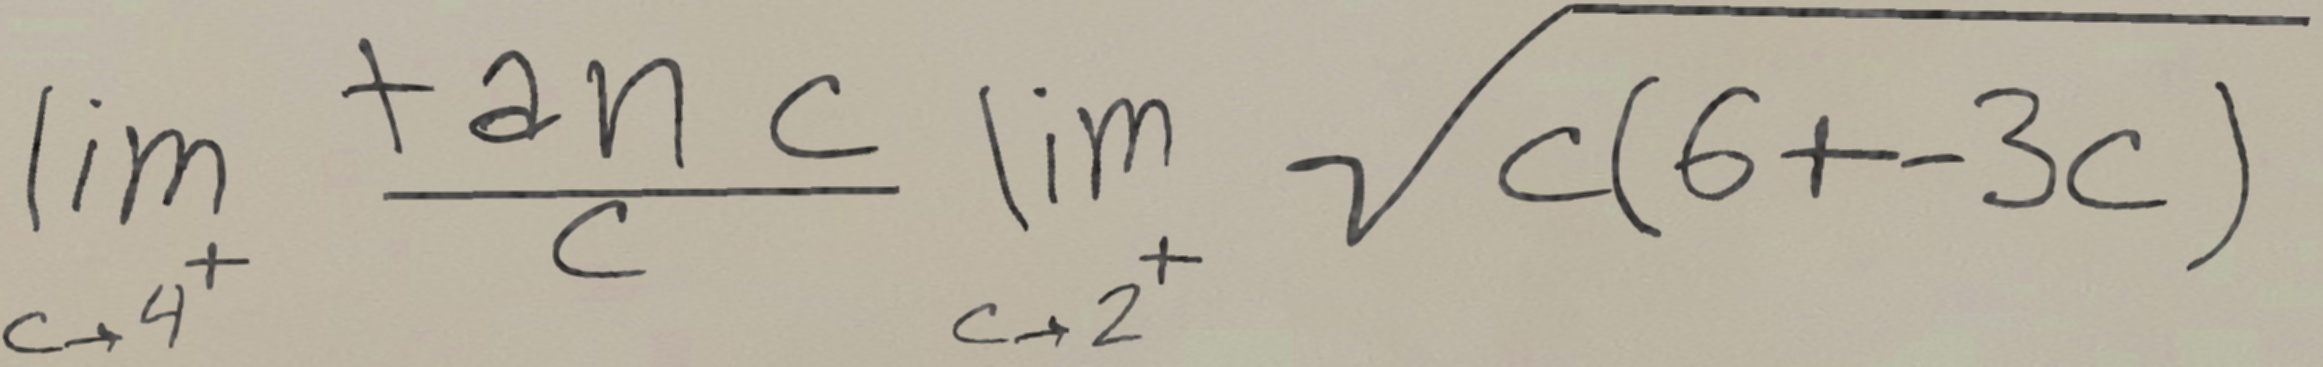 \lim_{c \to 4^+} \frac{\tan c}{c} \lim_{c \to 2^+} \sqrt{c(6+-3c)}